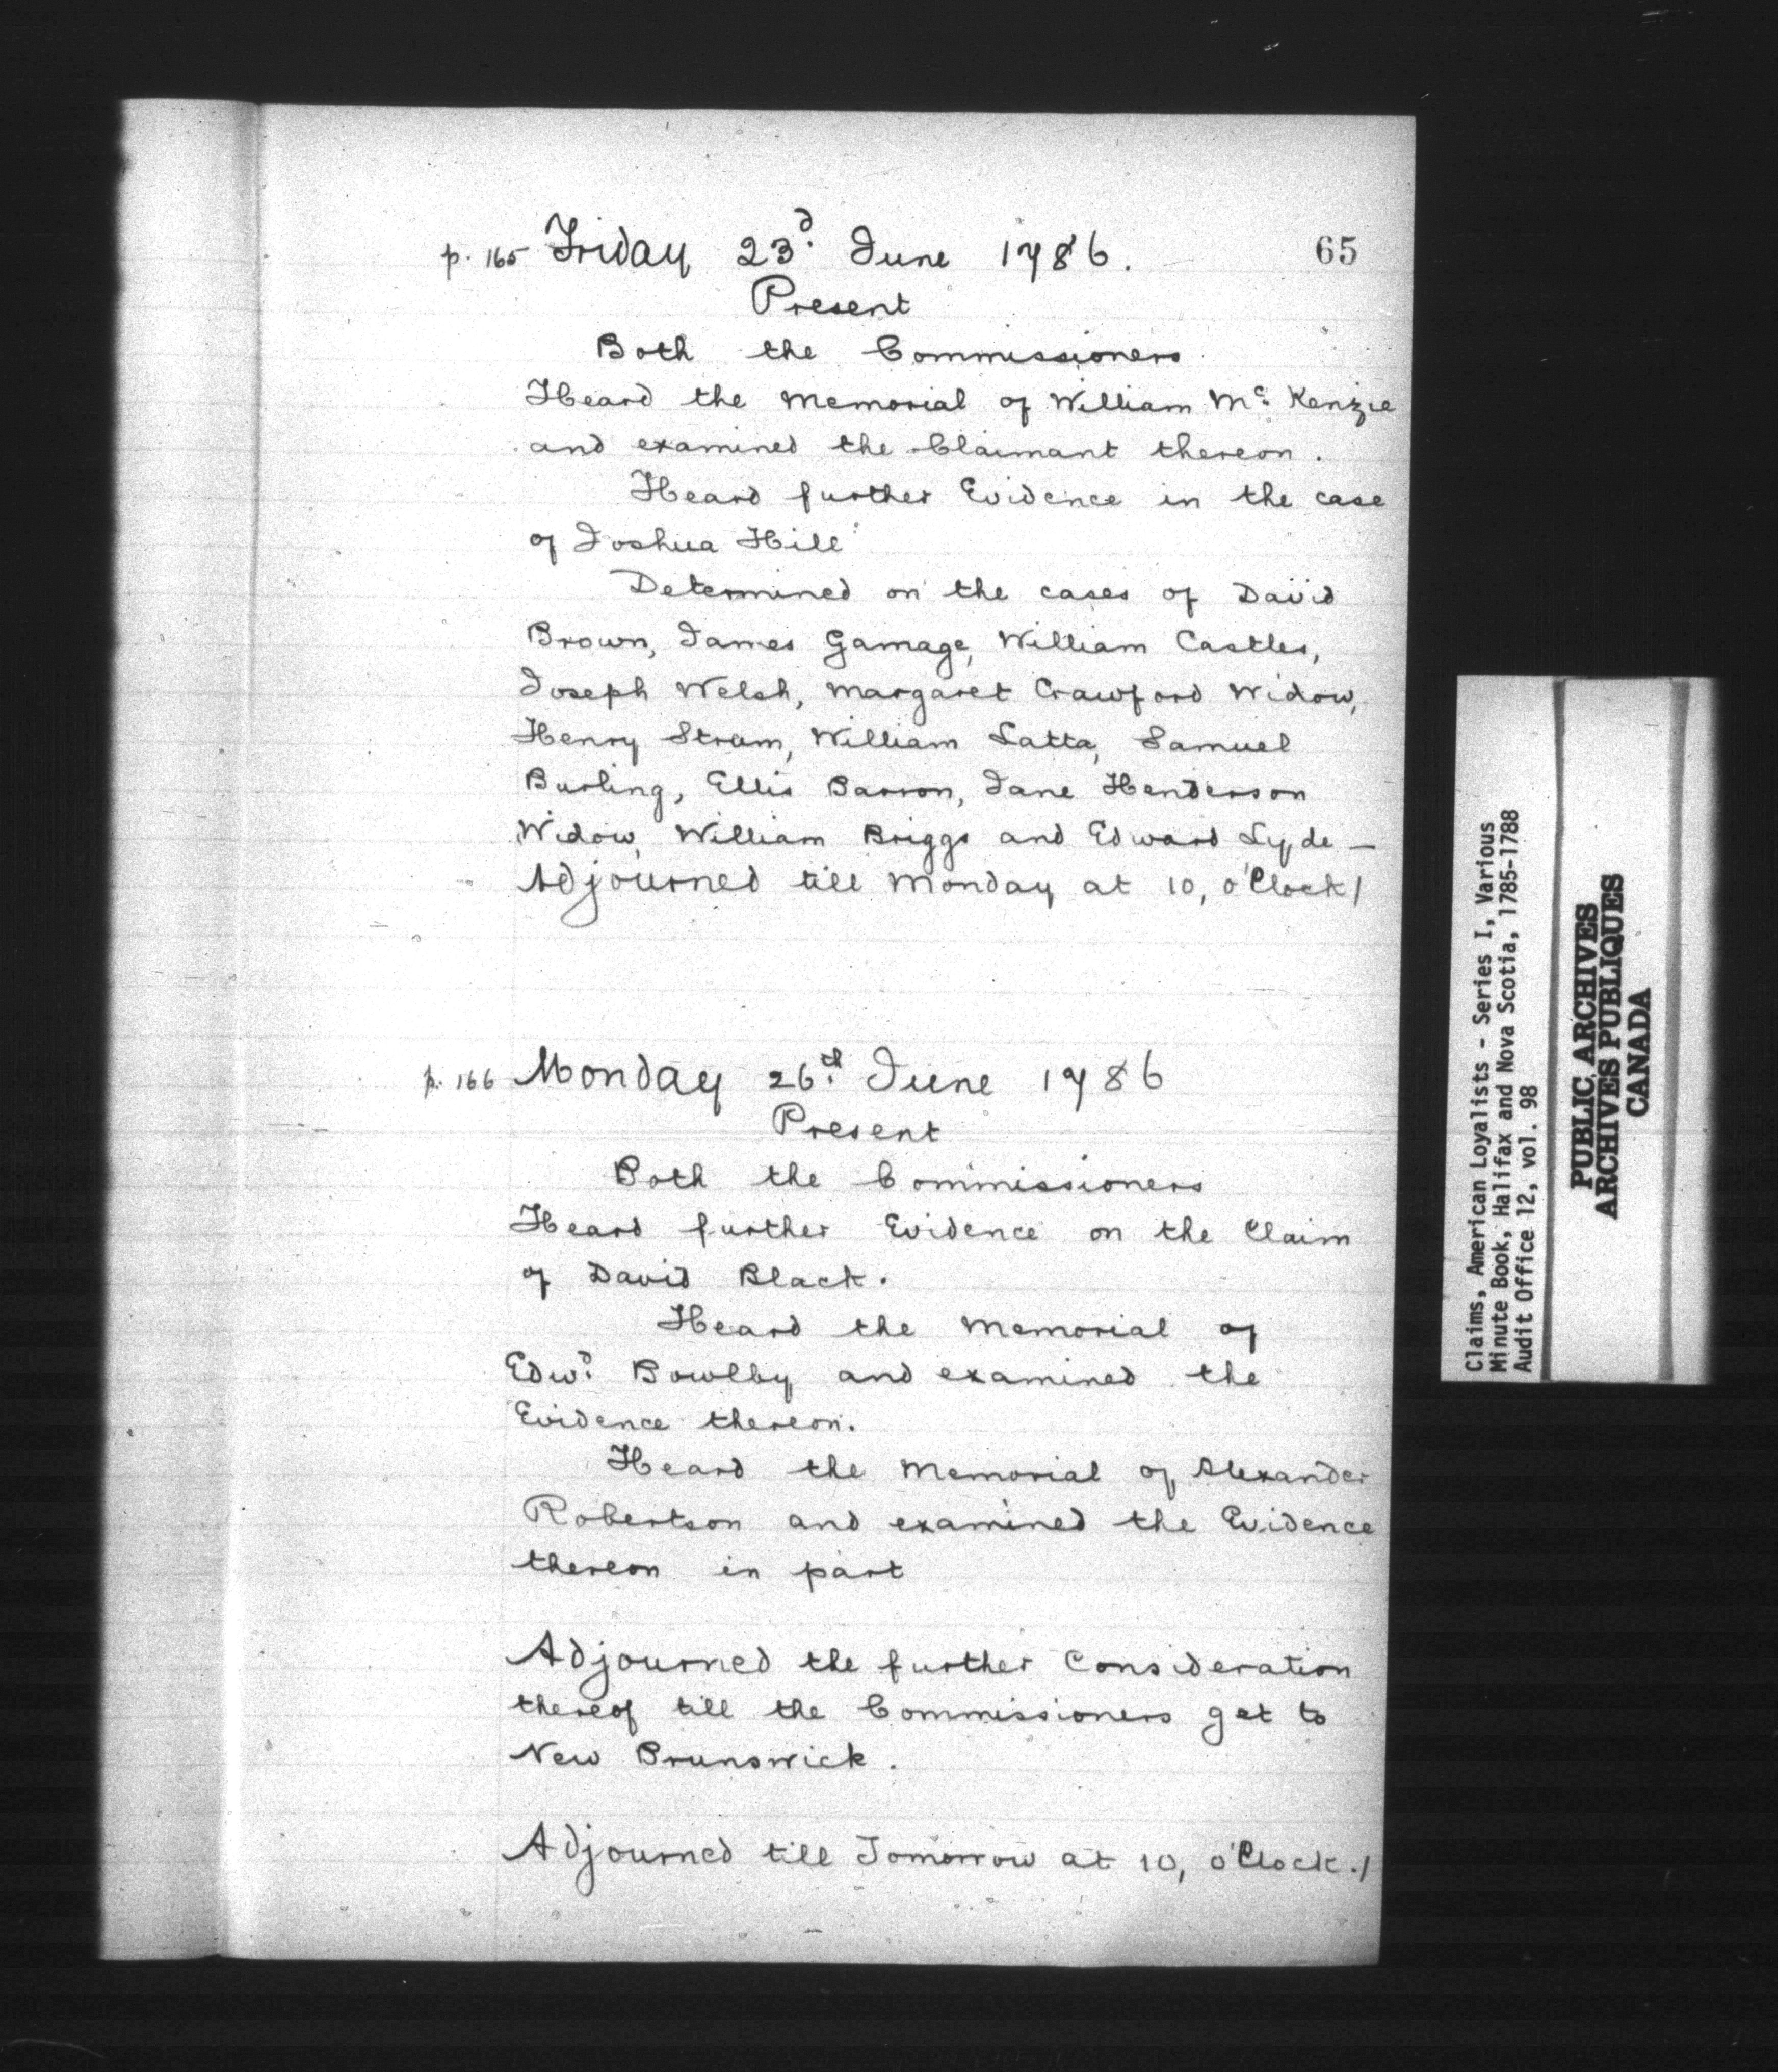 65
p. 165 Friday 23d. June 1786.
Present
Both the Commissioners
Heard the Memorial of William Mc. Kenzie
and examined the Claimant thereon.
Heard further Evidence in the case
of Joshua Hill
Determined on the cases of David
Brown, James Gamage, William Castles,
Joseph Welsh, Margaret Crawford Widow,
Henry Stram, William Latta, Samuel
Burling, Ellis Barron, Jane Henderson
Widow, William Briggs and Edward Lyde —
Adjourned till Monday at 10, o'Clock/
p. 166 Monday 26th. June 1786
Present
Both the Commissioners
Heard further Evidence on the Claim
of David Black.
Heard the Memorial of
Edwd. Bowlby and examined the
Evidence thereon.
Heard the Memorial of Alexander
Robertson and examined the Evidence
thereon in part
Adjourned the further Consideration
thereof till the Commissioners get to
New Brunswick.
Adjourned till Tomorrow at 10, o'Clock./
Claims, American Loyalists - Series I, Various
Minute Book, Halifax and Nova Scotia, 1785-1788
Audit Office 12, vol. 98
PUBLIC ARCHIVES
ARCHIVES PUBLIQUES
CANADA